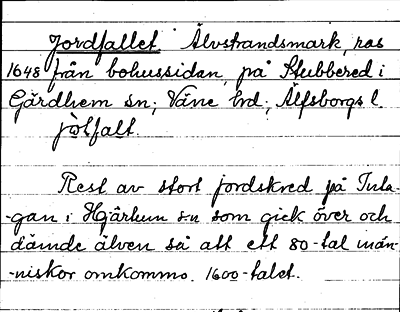 Jordfallet Älvstrandsmark, ras
1648 från bohussidan, på Stubbered i
Gärdhem sn; Väne hd; Älfsborgs l.
jòlfalt.
Rest av stort jordskred på Inla-
-gan i Hjärtum sn som gick över och
dämde älven så att ett 80-tal män-
-niskor omkommo. 1600-talet.